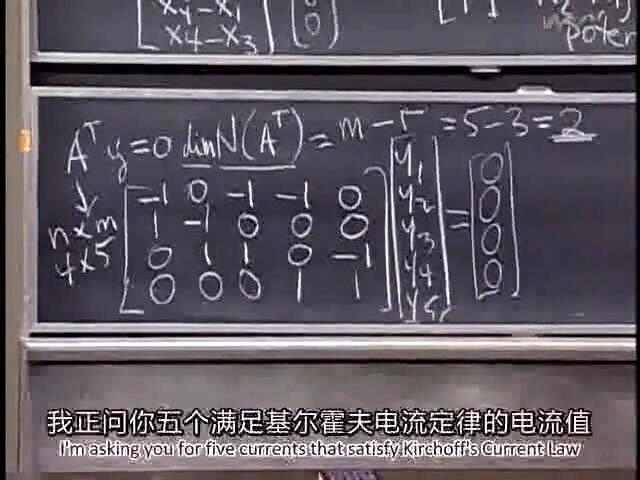 x4-x1
x4-x3
0
0
Aᵀy=0 dim N(Aᵀ)=m-r=5-3=2
n×m
4×5
-1 0 -1 -1 0 y1 0
1 -1 0 0 0 y2 0
0 1 1 0 -1 y3 = 0
0 0 0 1 1 y4 0
y5
我正问你五个满足基尔霍夫电流定律的电流值
I'm asking you for five currents that satisfy Kirchoff's Current Law